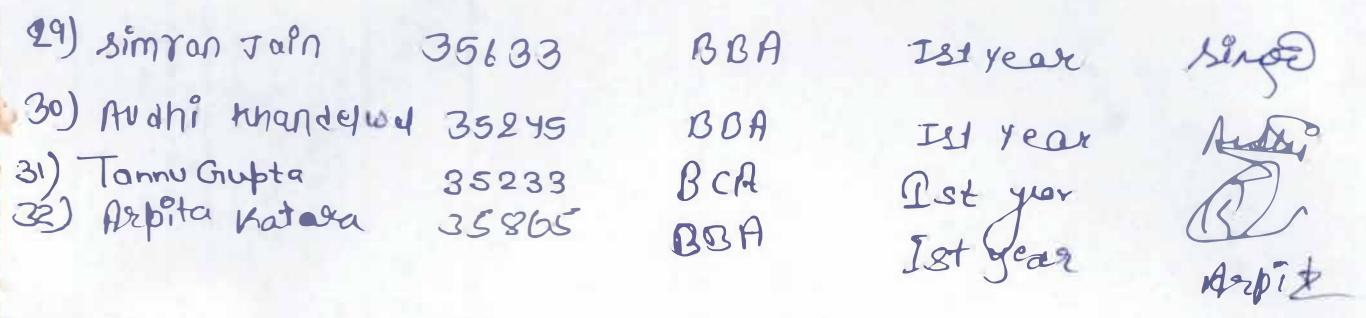 29) Simran Jain 35633 BBA Ist year
30) Avdhi Khandelwal 35245 BBA Ist year Avdhi
31) Tannu Gupta 35233 BCA Ist year
32) Arpita Katara 35865 BBA Ist year Arpita